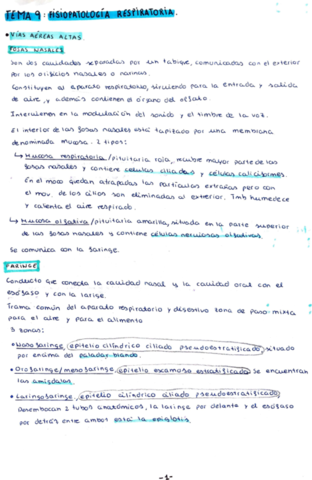 TEMA 9: FISIOPATOLOGÍA RESPIRATORIA.
• VÍAS AÉREAS ALTAS
FOSAS NASALES
Son dos cavidades separadas por un tabique, comunicadas con el exterior
por los orificios nasales o narinas.
Constituyen el aparato respiratorio, sirviendo para la entrada y salida
de aire, y además contienen el órgano del olfato.
Intervienen en la modulación del sonido y el timbre de la voz.
El interior de las fosas nasales está tapizado por una membrana
denominada mucosa. 2 tipos:
↳ Mucosa respiratoria/pituitaria roja, recubre mayor parte de las
fosas nasales y contiene células ciliadas y células caliciformes.
En el moco quedan atrapadas las partículas extrañas pero con
el mov. de los cilios son eliminadas al exterior. Tmb humedece
y calienta el aire respirado.
↳ Mucosa olfativa/pituitaria amarilla, situada en la parte superior
de las fosas nasales y contiene células nerviosas olfativas.
Se comunica con la faringe.
FARINGE
Conducto que conecta la cavidad nasal y la cavidad oral con el
esófago y con la laringe.
Tramo común del aparato respiratorio y digestivo zona de paso mixta
para el aire y para el alimento
3 zonas:
• Nasofaringe, epitelio cilíndrico ciliado pseudoestratificado, situado
por encima del paladar blando.
• Orofaringe/mesofaringe, epitelio escamoso estratificado. Se encuentran
las amígdalas.
• Laringofaringe, epitelio cilíndrico ciliado pseudoestratificado
Desembocan 2 tubos anatómicos, la laringe por delante y el esófago
por detrás entre ambos está la epiglotis
-1-